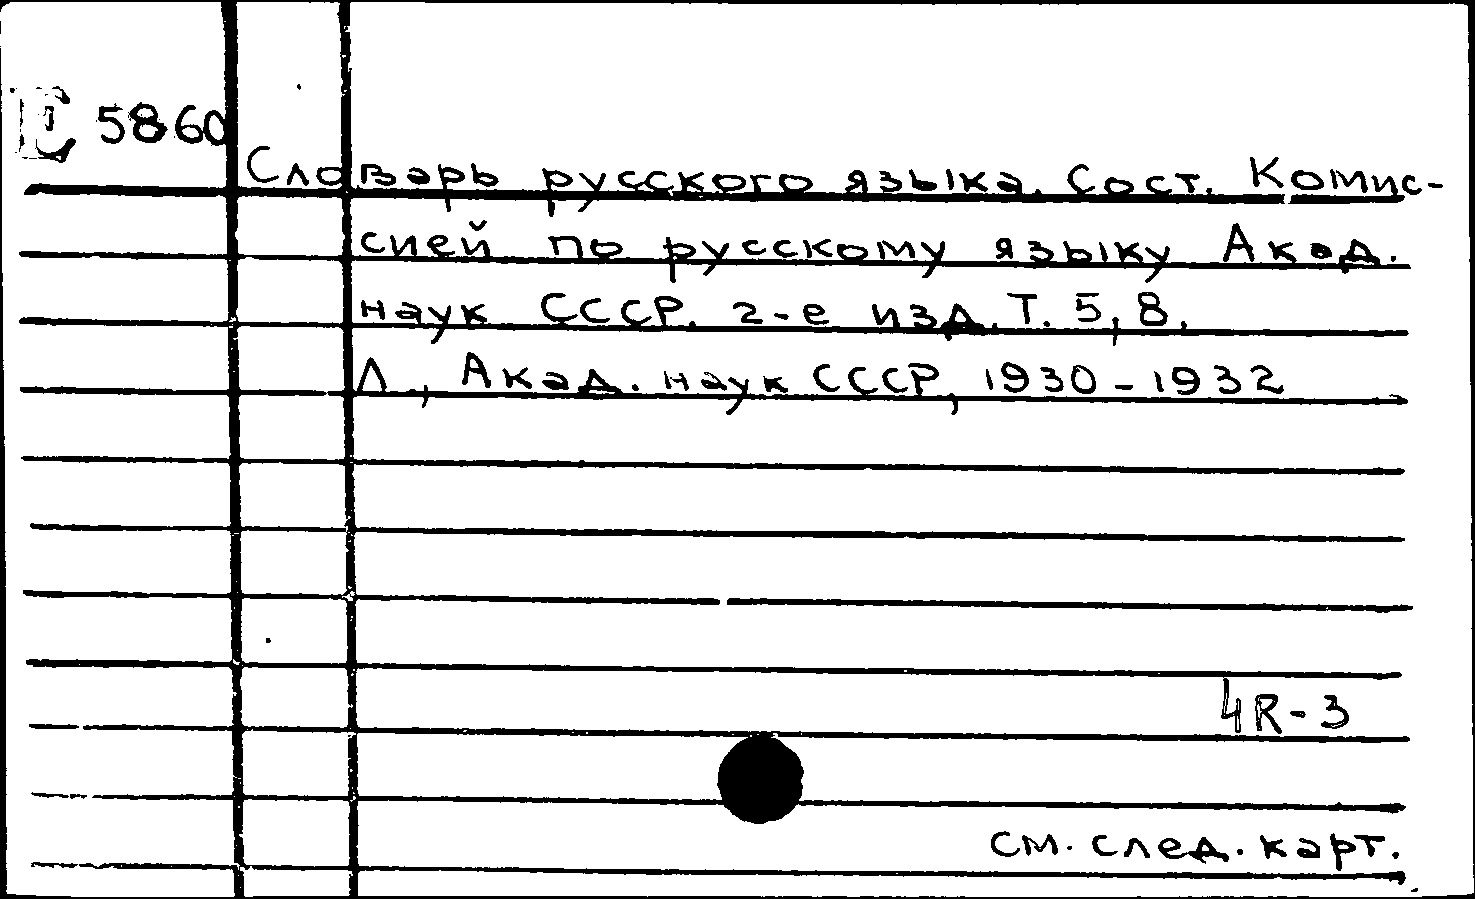 E 5860
Словарь русского языка. Сост. Комис-
сией по русскому языку Акад.
наук СССР. 2-е изд. Т. 5, 8.
Л., Акад. наук СССР, 1930-1932
4R-3
см. след. карт.